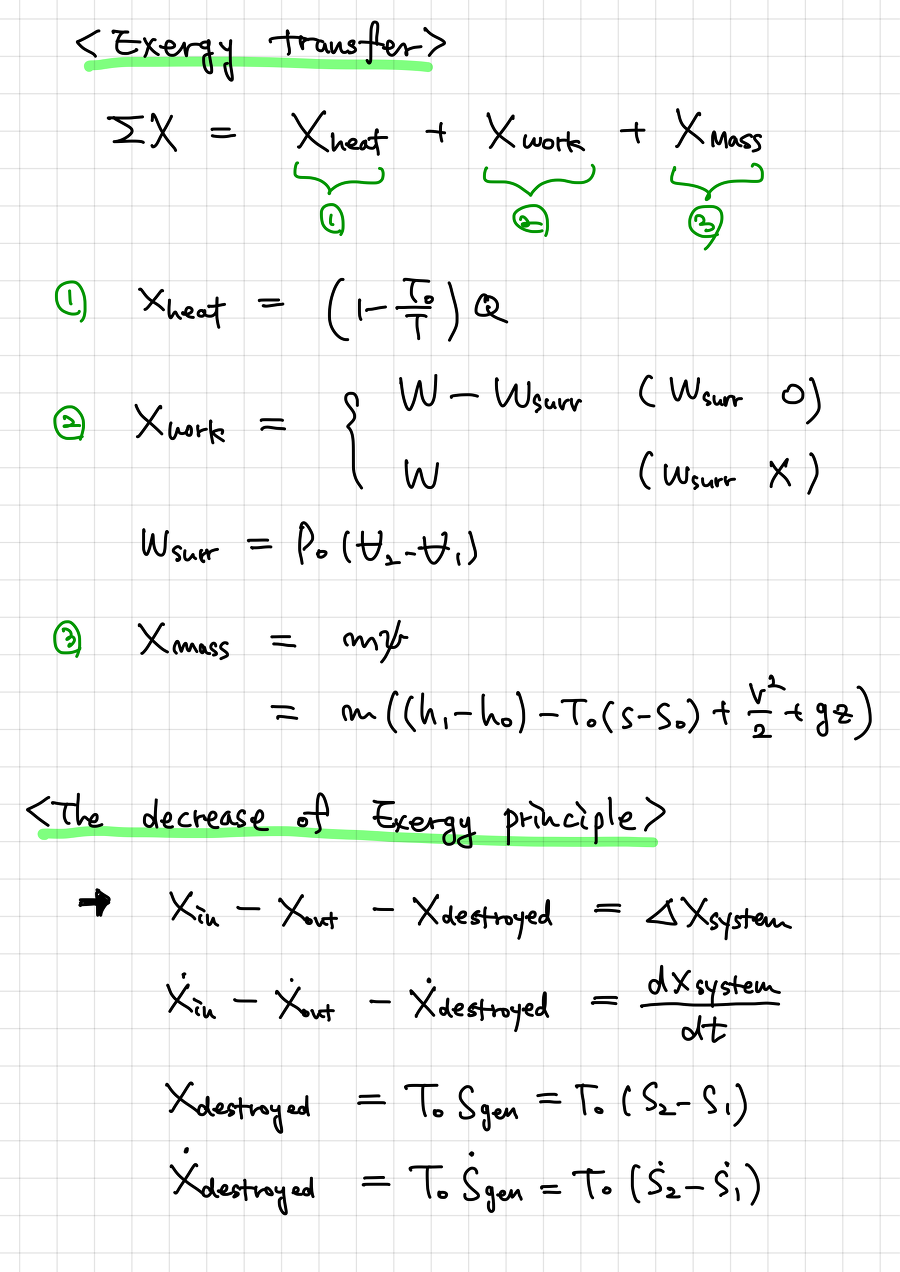 <Exergy transfer>
ΣX = X_heat + X_work + X_mass
① ② ③
① X_heat = (1 - T₀/T) Q
② X_work = { W - W_surr (W_surr O)
W (W_surr X)
W_surr = P₀ (V₂ - V₁)
③ X_mass = mψ
= m((h₁ - h₀) - T₀(s - s₀) + V²/2 + gz)
<The decrease of Exergy principle>
→ X_in - X_out - X_destroyed = ΔX_system
Ẋ_in - Ẋ_out - Ẋ_destroyed = dX_system/dt
X_destroyed = T₀ S_gen = T₀ (S₂ - S₁)
Ẋ_destroyed = T₀ Ṡ_gen = T₀ (Ṡ₂ - Ṡ₁)